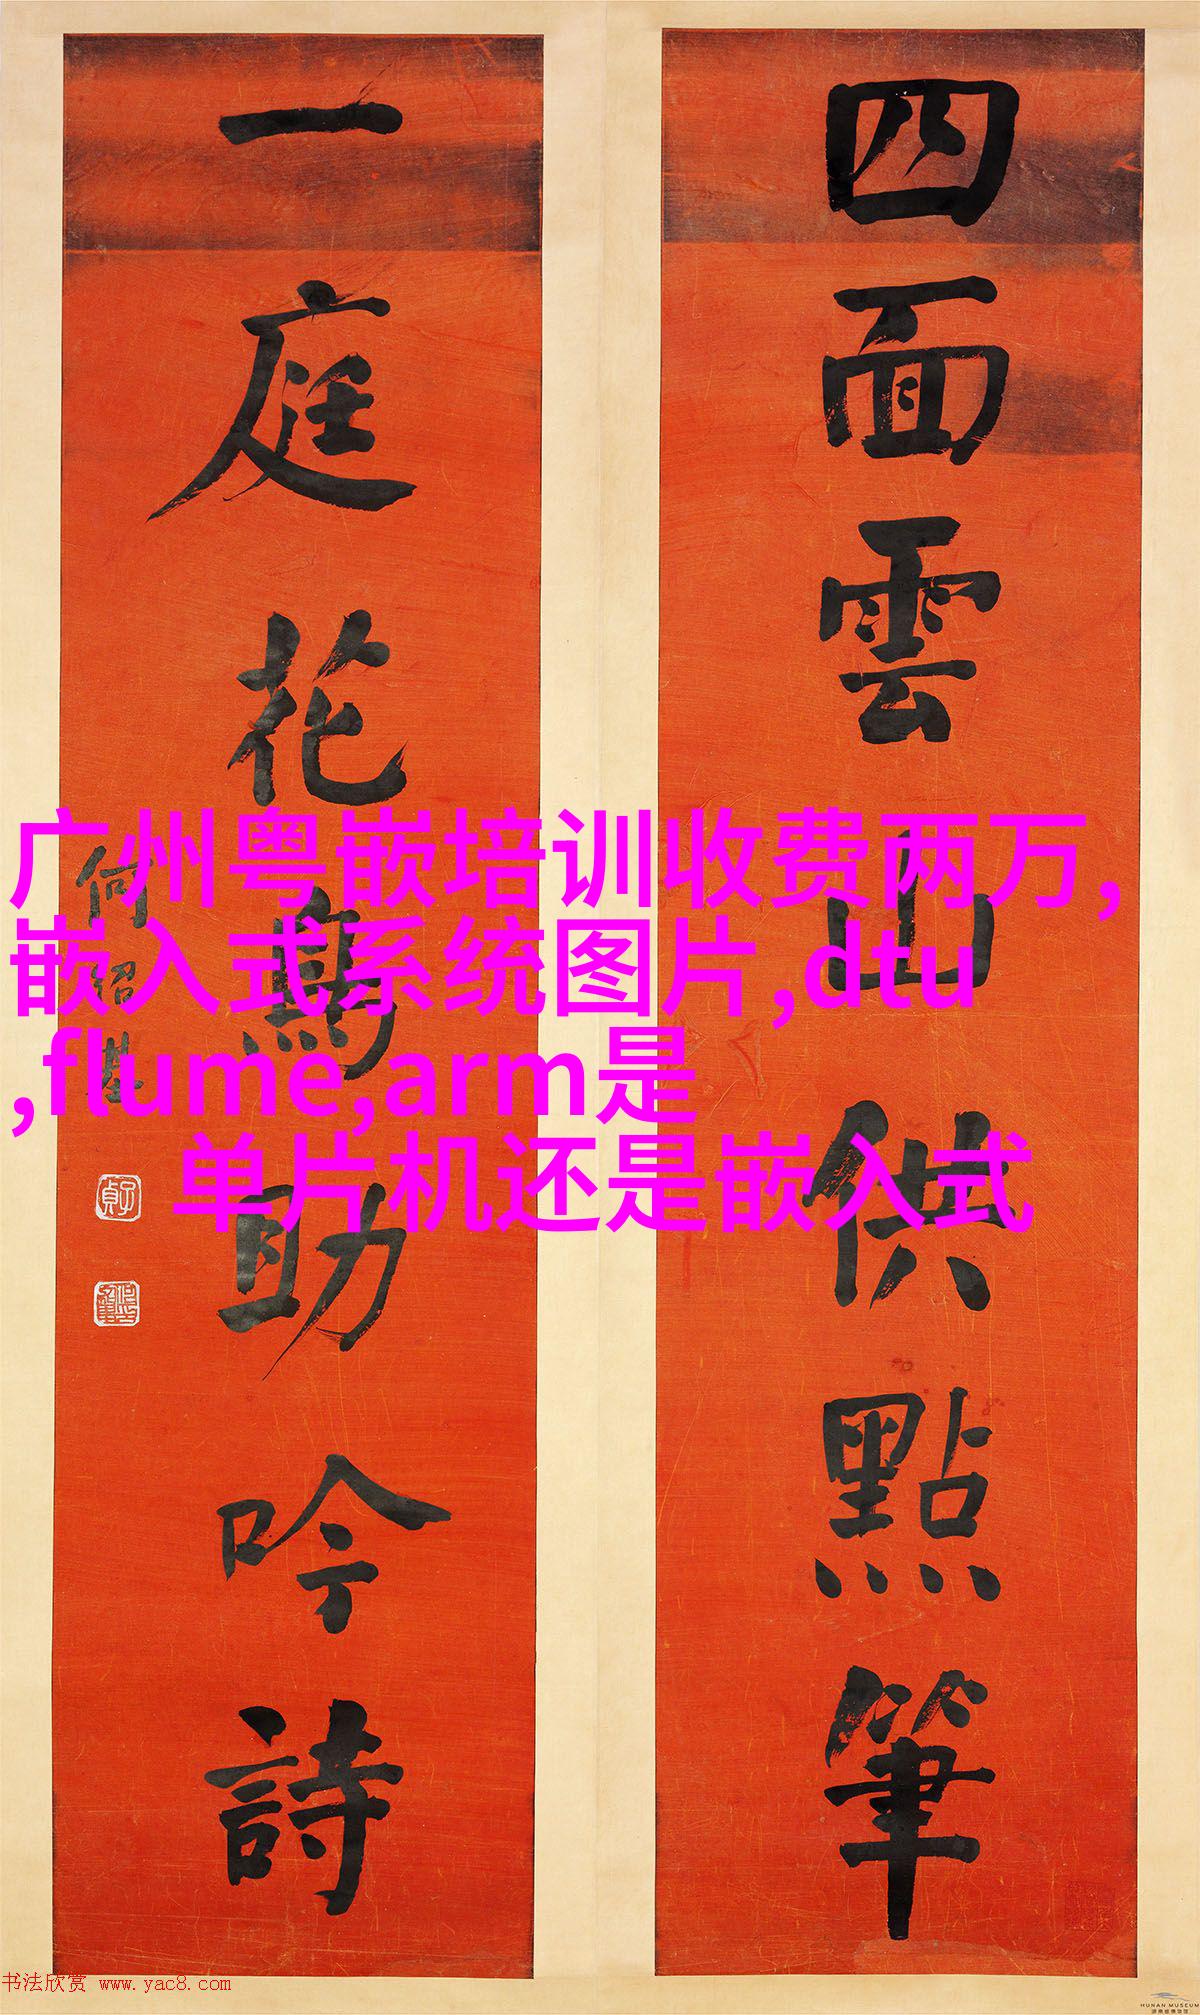 四面雲山供點筆
一庭花鳥助吟詩
何紹基
广州粤嵌培训收费两万,
嵌入式系统图片,dtu
,flume,arm是
单片机还是嵌入式
书法欣赏 www.yac8.com
HUNAN MUSEUM